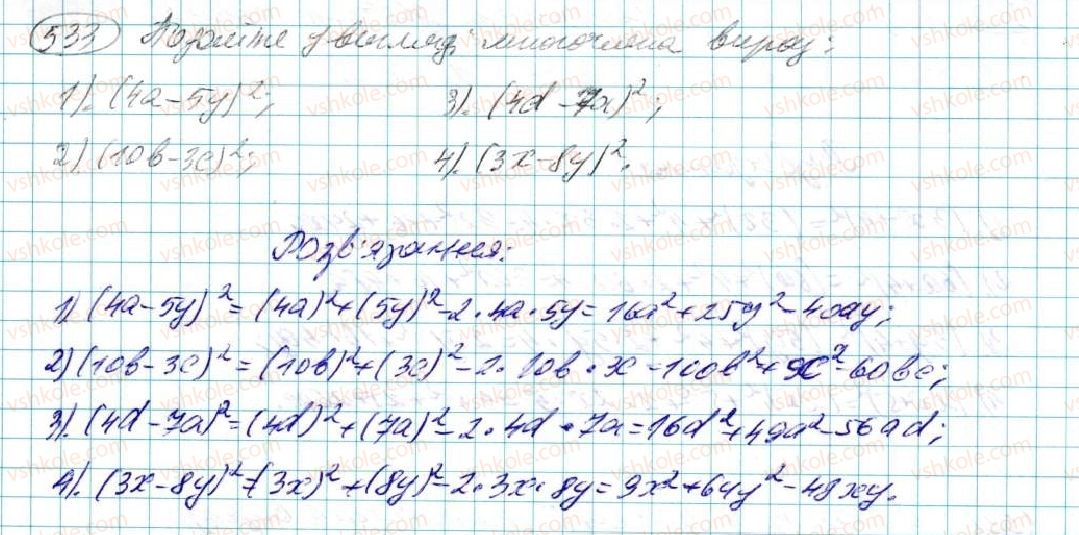 533 Подайте у вигляді многочлена вираз:
1). (4a-5y)²; 3). (4d-7a)²;
2). (10b-3c)²; 4). (3x-8y)².
Розв'язання:
1) (4a-5y)² = (4a)²+(5y)²-2·4a·5y = 16a²+25y²-40ay;
2) (10b-3c)² = (10b)²+(3c)²-2·10b·3c = 100b²+9c²-60bc;
3). (4d-7a)² = (4d)²+(7a)²-2·4d·7a = 16d²+49a²-56ad;
4). (3x-8y)² = (3x)²+(8y)²-2·3x·8y = 9x²+64y²-48xy.